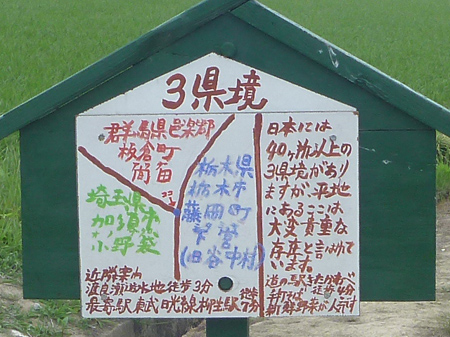 3県境
群馬県邑楽郡
板倉町
埼玉県
加須市
小野袋
栃木県
栃木市
藤岡町
下宮
(旧谷中村)
日本には
40ヶ所以上の
3県境があり
ますが、平地
にあるここは
大変貴重な
存在と言われて
います。
近隣案内
渡良瀬遊水地徒歩3分
最寄駅東武日光線柳生駅徒歩7分
道の駅きたかわべ
徒歩4分
新鮮野菜が人気です